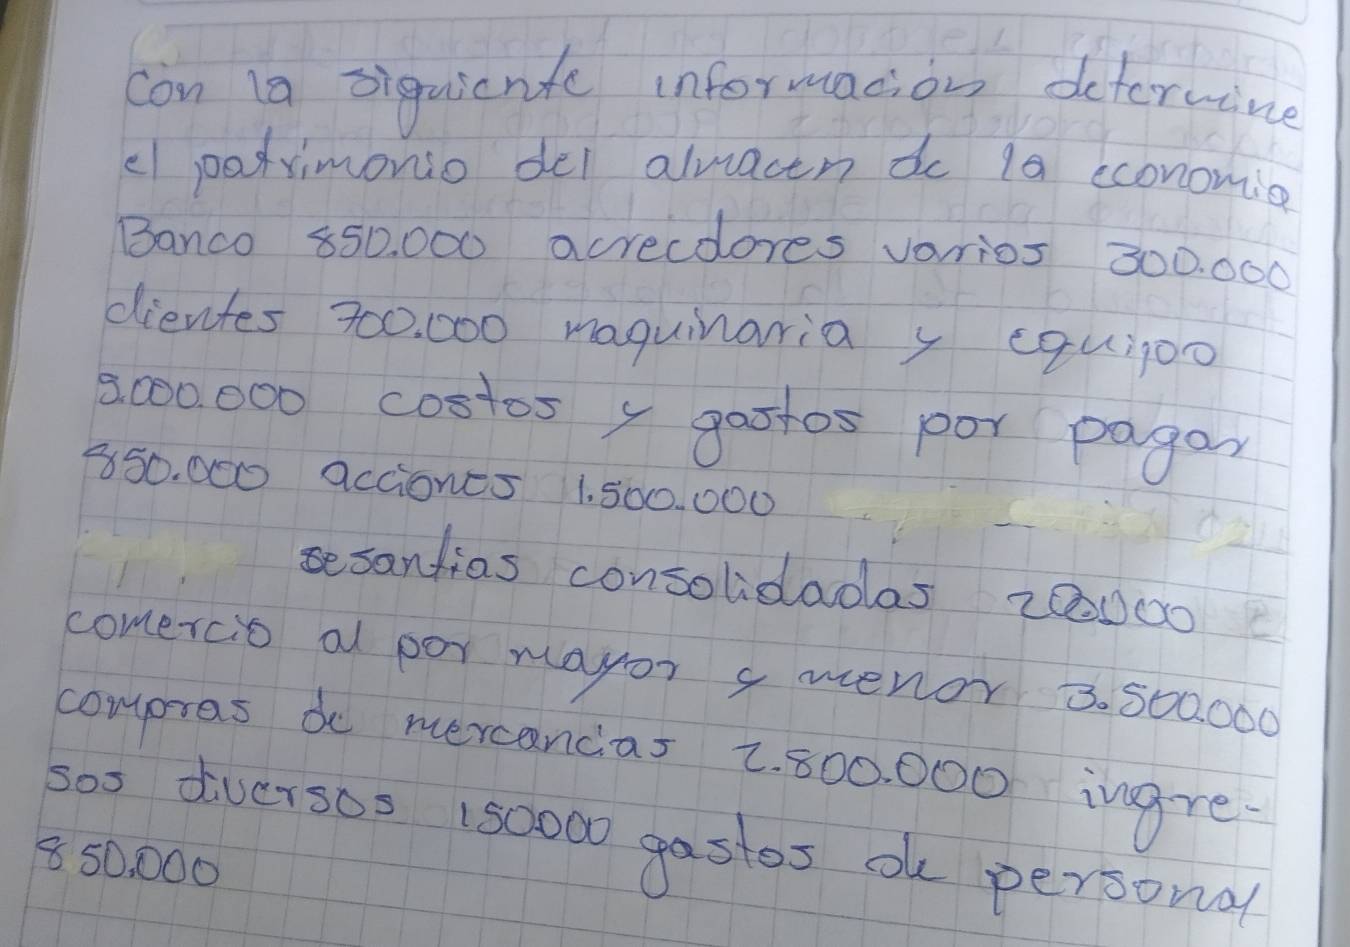 Con la siguiente información determine
el patrimonio del almacen de la economia
Banco 850.000 acreedores varios 300.000
clientes 700.000 maquinaria y equipo
5.000.000 costos y gastos por pagar
850.000 acciones 1.500.000
sesantias consolidadas
comercio al por mayor y menor 3.500.000
compras de mercancias 2.800.000 ingre-
sos diversos 150000 gastos de personal
850.000